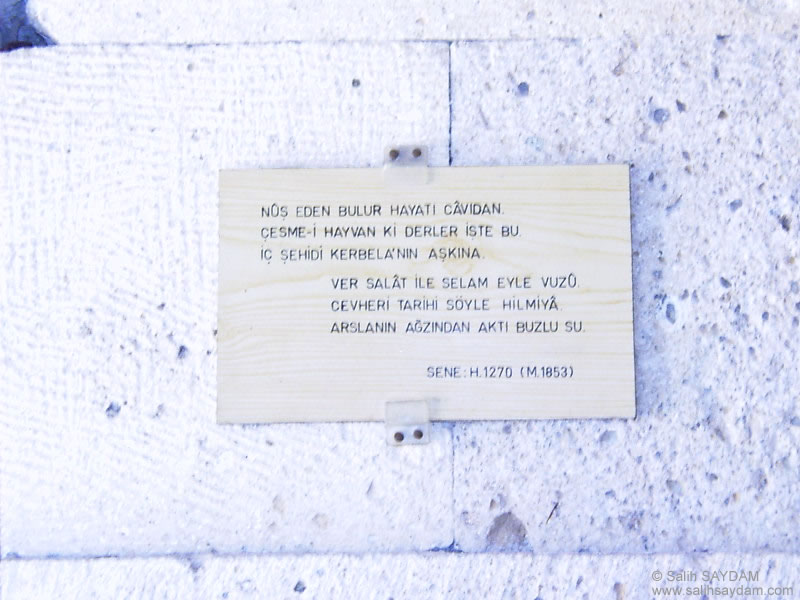 NÛŞ EDEN BULUR HAYATI CÂVIDAN.
ÇEŞME-İ HAYVAN Kİ DERLER İŞTE BU.
İÇ ŞEHİDİ KERBELA'NIN AŞKINA.
VER SALÂT İLE SELAM EYLE VUZÛ.
CEVHERİ TARİHİ SÖYLE HİLMİYÂ.
ARSLANIN AĞZINDAN AKTI BUZLU SU.
SENE: H.1270 (M.1853)
© Salih SAYDAM
www.salihsaydam.com